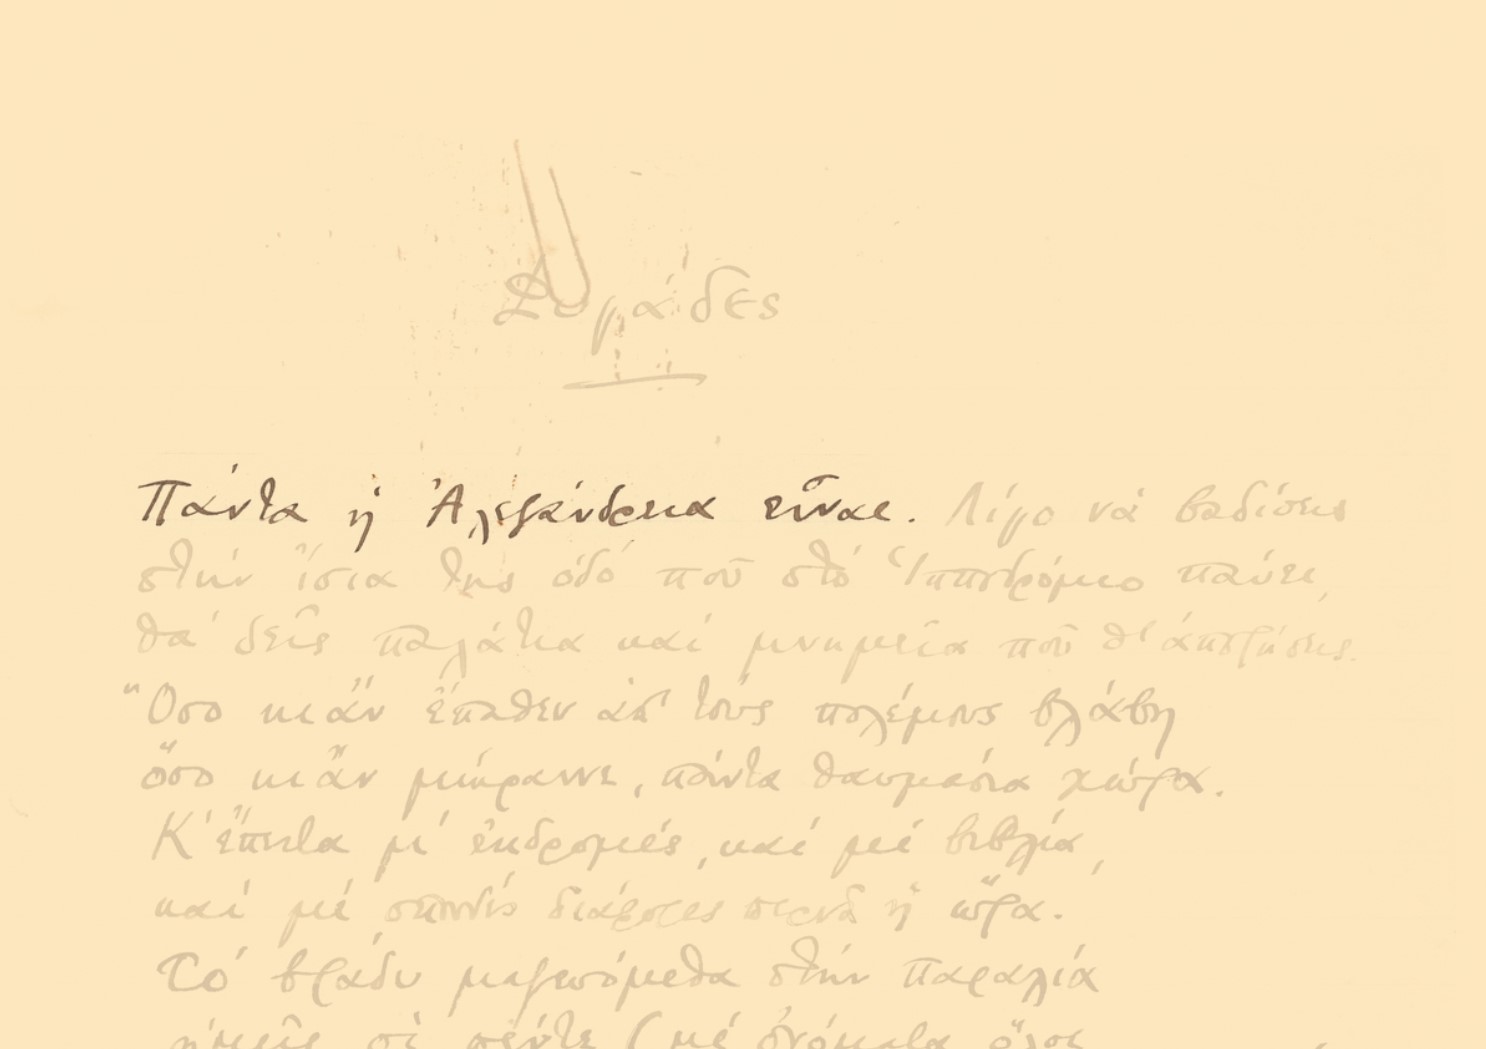 Φυγάδες
Πάντα ἡ Ἀλεξάνδρεια εἶναι. Λίγο νὰ βαδίσεις
στὴν ἴσια της ὁδὸ ποὺ στὸ Ἱπποδρόμιο παύει,
θὰ δεῖς παλάτια καὶ μνημεῖα ποὺ θ' ἀπορήσεις.
Ὅσο κι ἂν ἔπαθεν ἀπ' τοὺς πολέμους βλάβη
ὅσο κι ἂν μίκραινε, πάντα θαυμάσια χώρα.
Κ' ἔπειτα μ' ἐκδρομές, καὶ μὲ βιβλία,
καὶ μὲ σπουδὲς διάφορες περνᾶ ἡ ὥρα.
Τὸ βράδυ μαζευόμεθα στὴν παραλία
ἡμεῖς οἱ πέντε (μὲ ὀνόματα ὅλοι